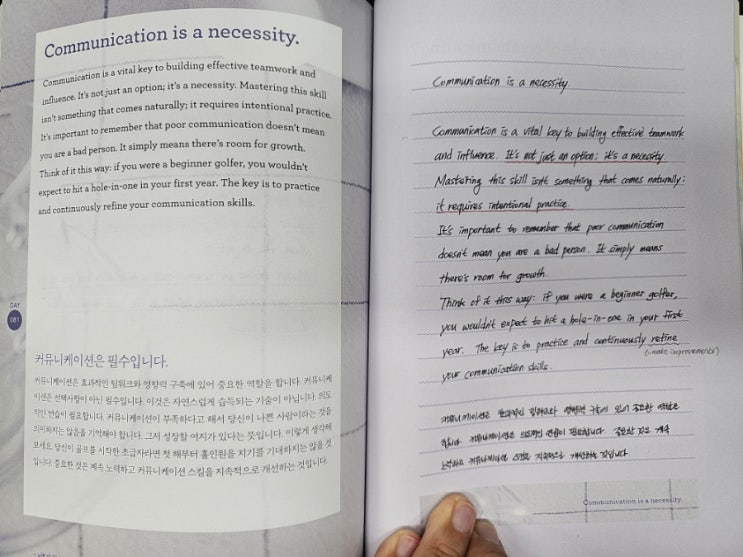 Communication is a necessity.
Communication is a vital key to building effective teamwork and
influence. It's not just an option; it's a necessity. Mastering this skill
isn't something that comes naturally; it requires intentional practice.
It's important to remember that poor communication doesn't mean
you are a bad person. It simply means there's room for growth.
Think of it this way: if you were a beginner golfer, you wouldn't
expect to hit a hole-in-one in your first year. The key is to practice
and continuously refine your communication skills.
DAY
081
커뮤니케이션은 필수입니다.
커뮤니케이션은 효과적인 팀워크와 영향력 구축에 있어 중요한 역할을 합니다. 커뮤니케
이션은 선택사항이 아닌 필수입니다. 이것은 자연스럽게 습득되는 기술이 아닙니다. 의도
적인 연습이 필요합니다. 커뮤니케이션이 부족하다고 해서 당신이 나쁜 사람이라는 것을
의미하지는 않음을 기억해야 합니다. 그저 성장할 여지가 있다는 뜻입니다. 이렇게 생각해
보세요. 당신이 골프를 시작한 초급자라면 첫 해부터 홀인원을 치기를 기대하지는 않을 것
입니다. 중요한 것은 계속 노력하고 커뮤니케이션 스킬을 지속적으로 개선하는 것입니다.
Communication is a necessity.
Communication is a vital key to building effective teamwork
and influence. It's not just an option; it's a necessity.
Mastering this skill isn't something that comes naturally;
it requires intentional practice.
It's important to remember that poor communication
doesn't mean you are a bad person. It simply means
there's room for growth.
Think of it this way: if you were a beginner golfer,
you wouldn't expect to hit a hole-in-one in your first
year. The key is to practice and continuously refine
(=make improvements)
your communication skills.
커뮤니케이션은 효과적인 팀워크와 영향력 구축에 있어 중요한 역할을
합니다. 커뮤니케이션은 의도적인 연습이 필요합니다. 중요한 것은 계속
노력하고 커뮤니케이션 스킬을 지속적으로 개선하는 것입니다.
Communication is a necessity.